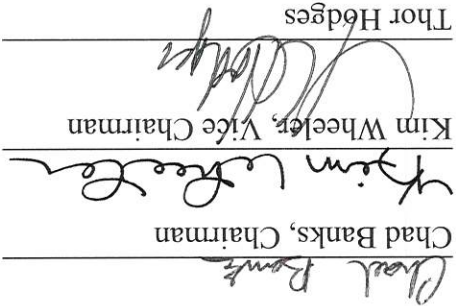 Chad Banks
Chad Banks, Chairman
Kim Wheeler
Kim Wheeler, Vice Chairman
T Hodges
Thor Hodges